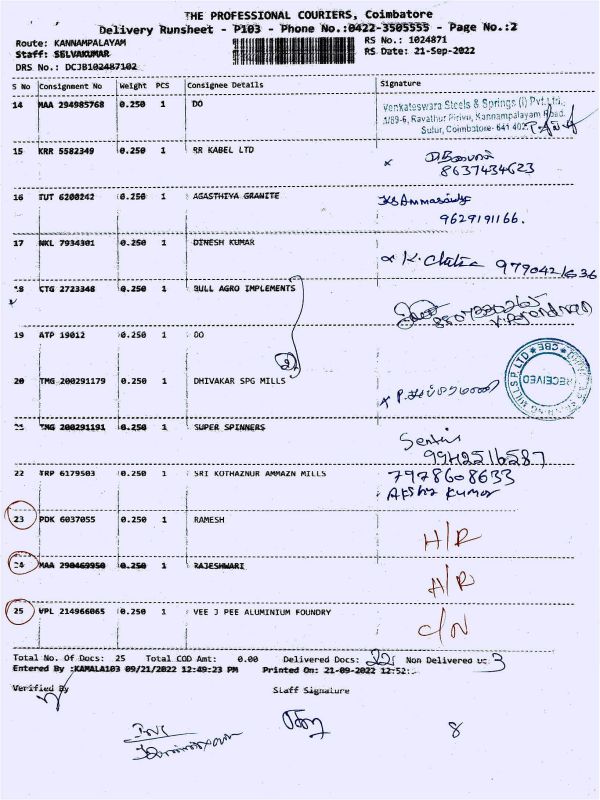 THE PROFESSIONAL COURIERS, Coimbatore
Delivery Runsheet - P103 - Phone No.:0422-3505555 - Page No.:2
Route: KANNAMPALAYAM RS No.: 1024871
Staff: SELVAKUMAR RS Date: 21-Sep-2022
DRS No.: DCJB102487102
S No Consignment No Weight PCS Consignee Details Signature
14 MAA 294985768 0.250 1 DO
Venkateswara Steels & Springs (i) Pvt.Ltd.,
Ravathur Pirivu, Kannampalayam Road,
Sulur, Coimbatore- 641 402.
15 KRR 5582349 0.250 1 RR KABEL LTD
8637434623
16 TUT 6200242 0.250 1 AGASTHIYA GRANITE
9629191166.
17 NKL 7934301 0.250 1 DINESH KUMAR
9790421636
18 CTG 2723348 0.250 1 BULL AGRO IMPLEMENTS
19 ATP 19012 0.250 1 DO
2
20 TMG 200291179 0.250 1 DHIVAKAR SPG MILLS
RECEIVED
CBE
21 TMG 200291191 0.250 1 SUPER SPINNERS
9942516587
22 TRP 6179503 0.250 1 SRI KOTHAZNUR AMMAZN MILLS 7978608633
Akshay Kumar
23 PDK 6037055 0.250 1 RAMESH H/R
24 MAA 290469950 0.250 1 RAJESHWARI H/R
25 VPL 214966065 0.250 1 VEE J PEE ALUMINIUM FOUNDRY C/N
Total No. Of Docs: 25 Total COD Amt: 0.00 Delivered Docs: 22 Non Delivered 3
Entered By :KAMALA103 09/21/2022 12:49:23 PM Printed On: 21-09-2022 12:52:
Verified By Staff Signature
8